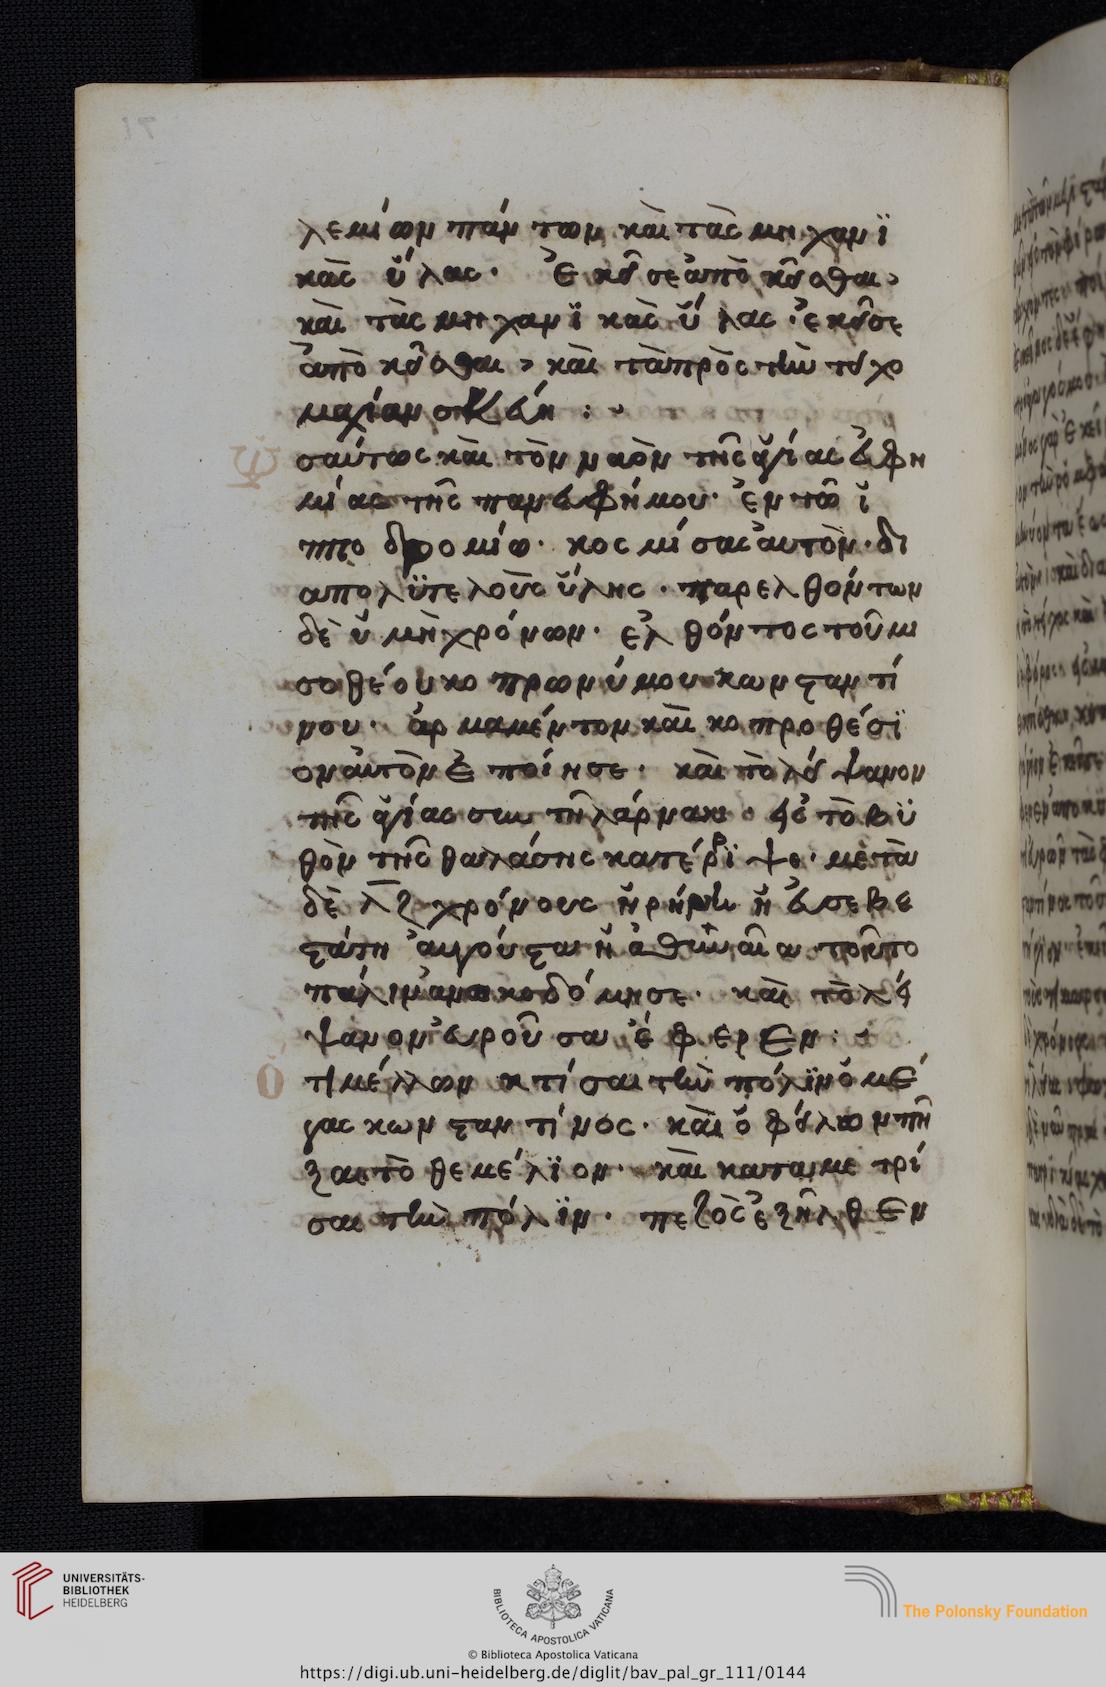 λεμίων πάντων καὶ τὰς μηχανϊ
κὰς ὕλας· ἐκεῖσε ἀποκεῖσθαι,
καὶ τὰς μηχανϊκὰς ὕλας· ἐκεῖσε
ἀποκεῖσθαι, καὶ τὰ πρὸς τὴν τειχο
μαχίαν σκεύη :
Ὡ σαύτως καὶ τὸν ναὸν τῆς ἁγίας εὐφη
μίας τῆς πανευφήμου· ἐν τῶ ἱ
πποδρομίω· κοσμίσας αὐτὸν· δι
απολϋτελοῦς ὕλης· παρελθόντων
δὲ ὕ μὴ χρόνων· ἐλθόντος τοῦ μι
σοθέου κοπρωνύμου κωνσταντί
νου· ἀρμαμέντον καὶ κοπροθέσϊ
ον αὐτὸν ἐποίησε· καὶ τὸ λείψανον
τῆς ἁγίας σὺν τῆ λάρνακι· εἰς τὸ βϋ
θὸν τῆς θαλάσης κατέρϊψε· μετὰ
δὲ λζ χρόνους ἡ ρήνη ἡ εὐσεβε
στάτη αὐγούστα ἡ ἀθηναῖα τοῦτο
πάλιν ἀνοικοδόμησε· καὶ τὸ λεί
ψανον εὑροῦσα ἔφερεν :
Ὅ τι μέλλων κτίσαι τὴν πόλϊν ὁ μέ
γας κωνσταντίνος· καὶ ὀφείλων πῆ
ξαι τὸ θεμέλϊον· καὶ καταμετρί
σαι τὴν πόλϊν· πεζὸς ἐξῆλθεν
UNIVERSITÄTS-
BIBLIOTHEK
HEIDELBERG
BIBLIOTECA APOSTOLICA VATICANA
The Polonsky Foundation
© Biblioteca Apostolica Vaticana
https://digi.ub.uni-heidelberg.de/diglit/bav_pal_gr_111/0144